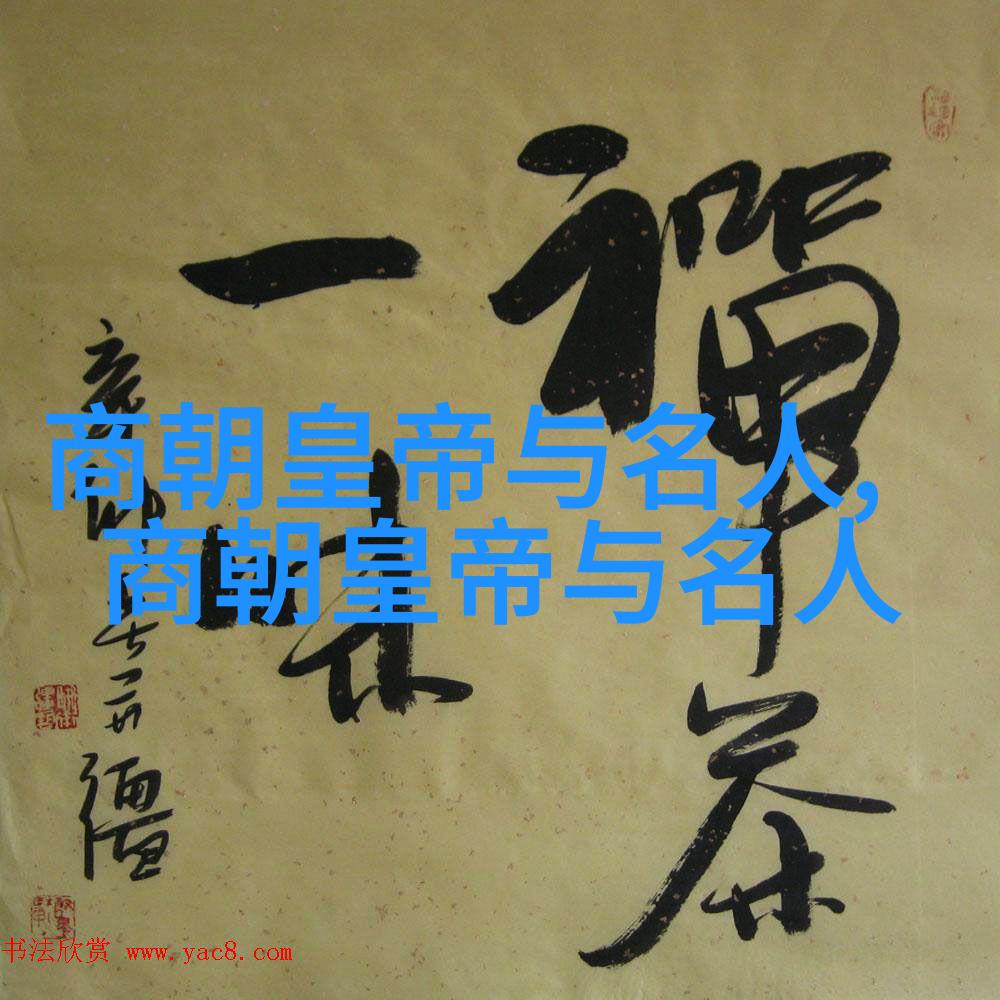 禪茶
一味
商朝皇帝与名人,
商朝皇帝与名人
书法欣赏 www.yac8.com